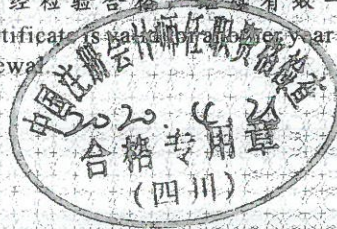 经检验合格，继续有效一
tificate is valid for another year
ewal
中国注册会计师任职资格检查
2020.4.26
合格专用章
(四川)